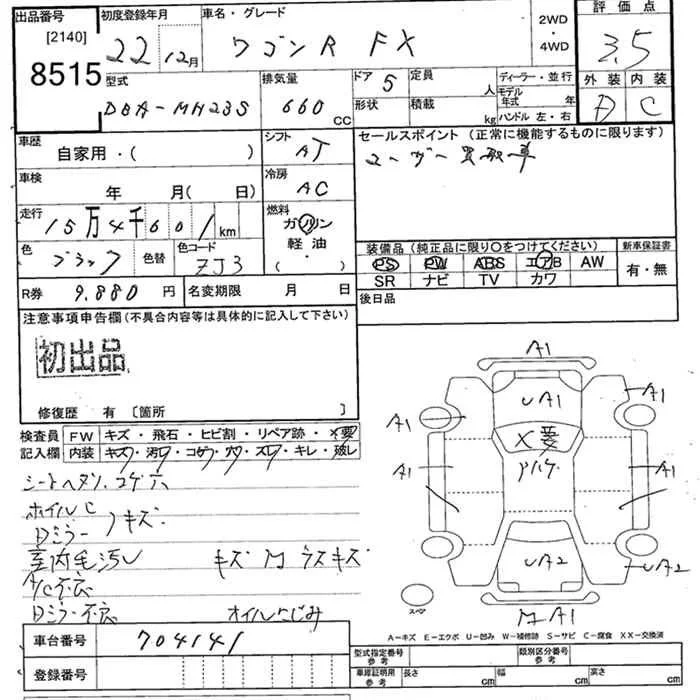 出品番号
[2140]
8515
初度登録年月
22年12月
車名・グレード
ワゴンR FX
2WD
・
4WD
評価点
3.5
外装 内装
D C
型式
DBA-MH23S
排気量
660 CC
ドア 5
定員 人
形状
積載 kg
ディーラー・並行
モデル年式 年
ハンドル 左・右
車歴
自家用・( )
シフト
AT
車検
年 月( 日)
冷房
AC
走行
15万4千601km
燃料
ガソリン
軽油
( )
色
ブラック
色替
色コード
ZJ3
R券 9.880 円
名変期限 月 日
セールスポイント(正常に機能するものに限ります)
ユーザー買取車
装備品(純正品に限り○をつけてください)
PS PW ABS エアB AW
SR ナビ TV カワ
新車保証書
有・無
後日品
注意事項申告欄(不具合内容等は具体的に記入して下さい)
初出品
修復歴 有〔箇所 〕
検査員
記入欄
FW キズ・飛石・ヒビ割・リペア跡・X要
内装 キズ・汚レ・コゲ・穴・スレ・キレ・破レ
シートヘタリ、コゲ穴
ホイルC
Dミラー キズ
室内毛汚レ
キズ M ウスキズ
A/C不広
Dミラー不広
オイルにじみ
車台番号 704141
登録番号
A1
UA1
A1
A1
X要
A1
A1
UA2
UA2
M A1
スペア
A-キズ E-エクボ U-凹み W-補修跡 S-サビ C-腐食 XX-交換済
型式指定番号
参考
類別区分番号
参考
車庫証明用
参考
長さ cm 幅 cm 高さ cm